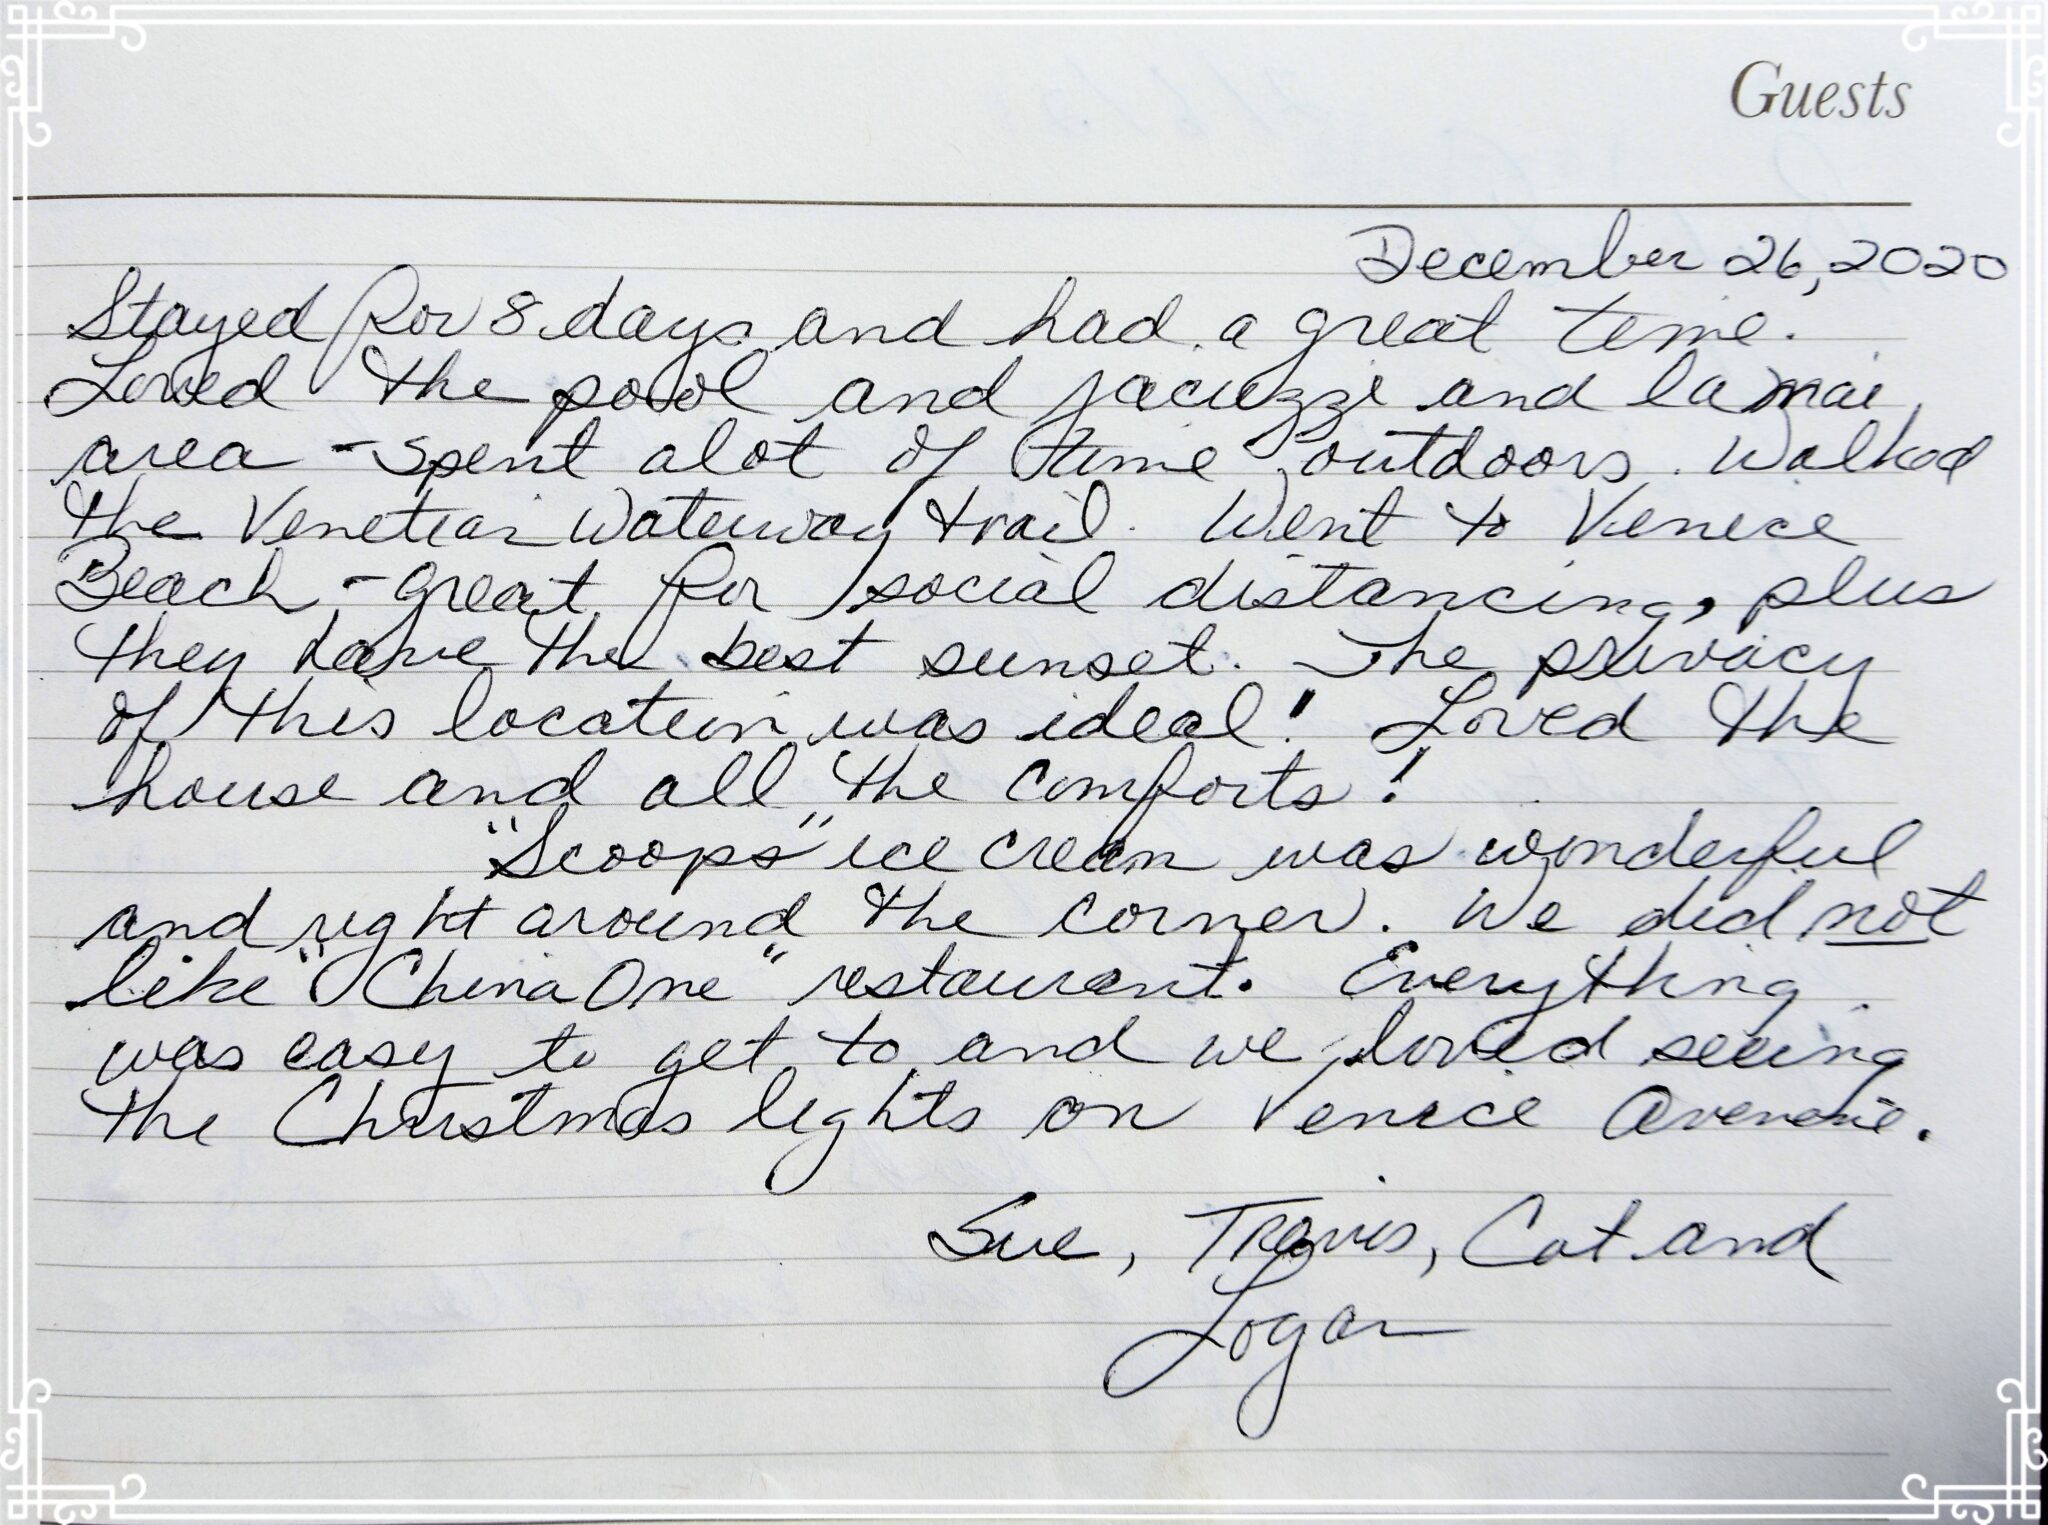 Guests
December 26, 2020
Stayed for 8 days and had a great time.
Loved the pool and jacuzzi and lanai
area - spent alot of time outdoors. Walked
the Venetian Waterway trail. Went to Venice
Beach - great for social distancing, plus
they have the best sunset. The privacy
of this location was ideal! Loved the
house and all the comforts!
"Scoops" ice cream was wonderful
and right around the corner. We did not
like "China One" restaurant. Everything
was easy to get to and we loved seeing
the Christmas lights on Venice Avenue.
Sue, Travis, Cat and
Logan